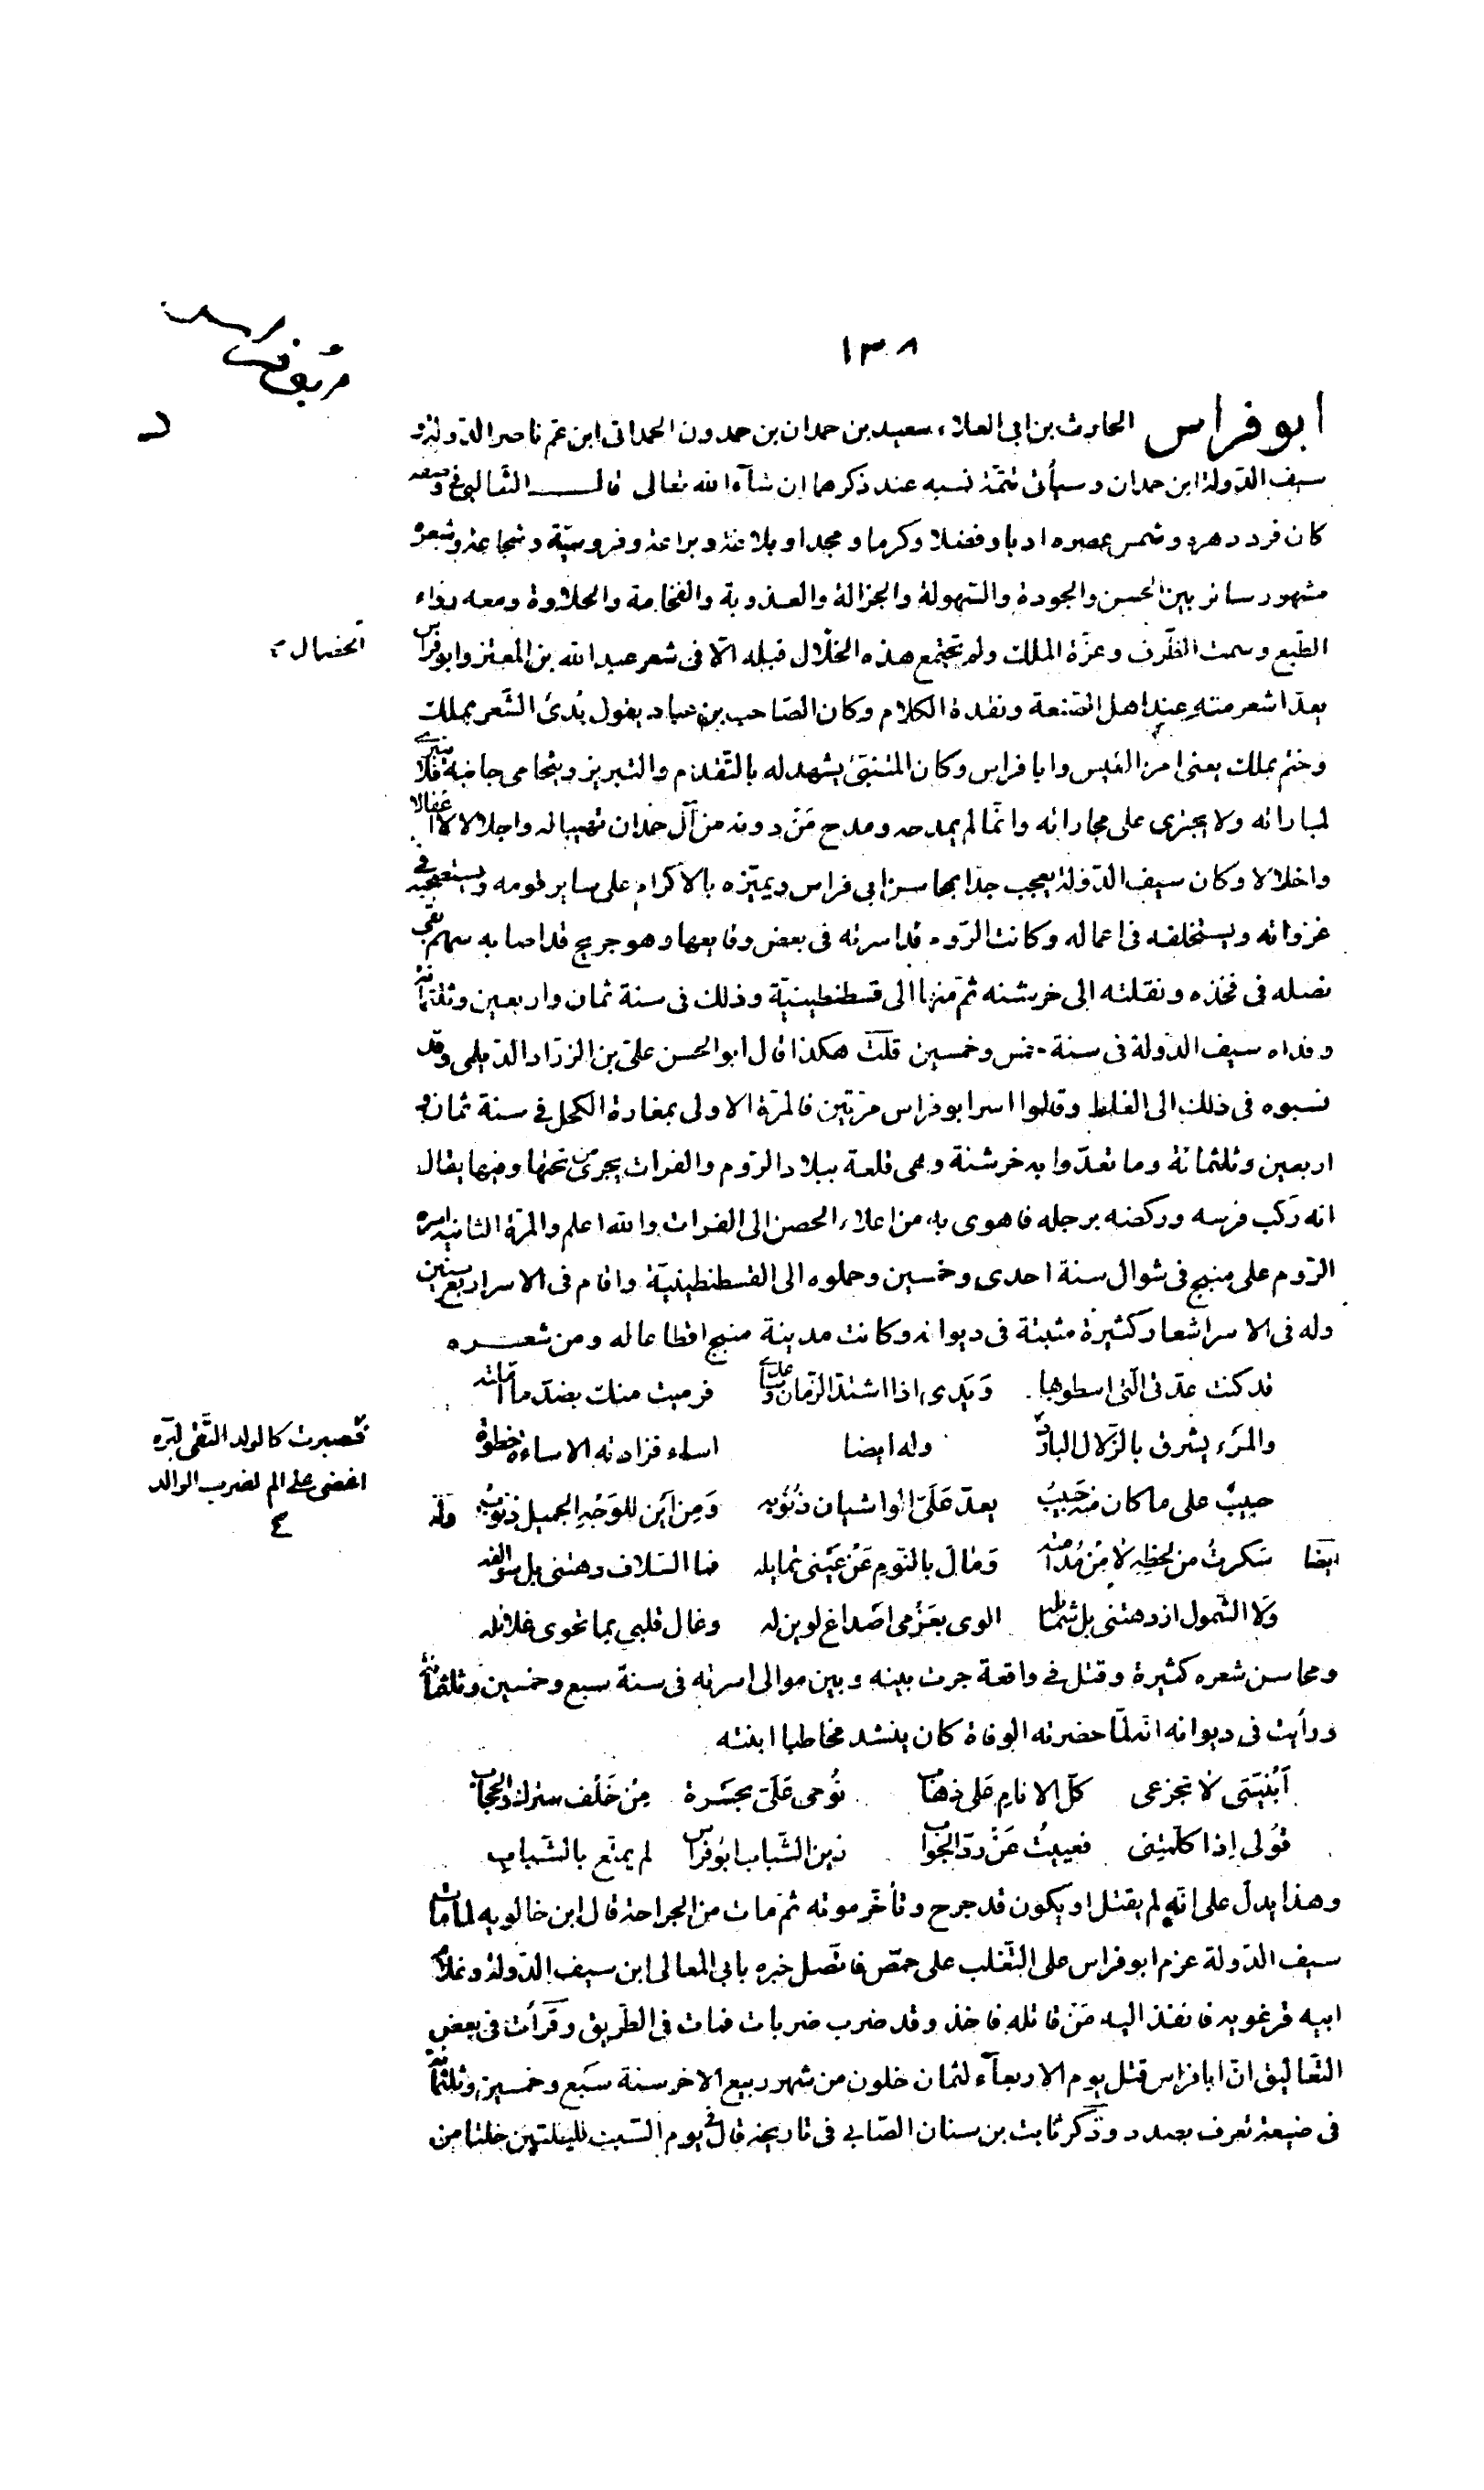 ١٣٨
ابو فراس الحارث بن ابى العلاء سعيد بن حمدان بن حمدون الحمدانى ابن عم ناصر الدولة و
سيف الدولة ابن حمدان وسيأتى تتمّة نسبه عند ذكرهما ان شآء الله تعالى قال الثعالبى فى وصفه
كان فرد دهره وشمس عصره ادبا وفضلا وكرما ومجدا وبلاغة وبراعة وفروسيّة وشجاعة وشعره
مشهور سائر بين الحسن والجودة والسّهولة والجزالة والعذوبة والفخامة والحلاوة ومعه رواء
الطّبع وسمت الظّرف وعزّة الملك ولم تجتمع هذه الخلال قبله الّا فى شعر عبد الله بن المعتز وابو فراس
الخصال
يعدّ اشعر منه عند اهل الصّنعة ونقدة الكلام وكان الصّاحب بن عباد يقول بُدئ الشّعر بملك
وختم بملك يعنى امرء القيس وابا فراس وكان المتنبّئ يشهد له بالتّقدّم والتبريز ويتحامى جانبه فلا ينبرى
لمباراته ولا يجترى على مجاراته وانّما لم يمدحه ومدح مَنْ دونه من آل حمدان تهيبا له واجلالا لا اغفالا
واخلالا وكان سيف الدّولة يعجب جدا بمحاسن ابى فراس ويميّزه بالاكرام على ساير قومه ويستصحبه فى
غزواته ويستخلفه فى اعماله وكانت الرّوم قد اسرته فى بعض وقايعها وهو جريح قد اصابه سهم بقى
نصله فى فخذه ونقلته الى خرشنه ثمّ منها الى قسطنطينيّة وذلك فى سنة ثمان واربعين وثلثمائة
وفداه سيف الدّولة فى سنة خمس وخمسين قلت هكذا قال ابو الحسن علىّ بن الزرّاد الدّيلمى وقد
نسبوه فى ذلك الى الغلط وقالوا اسر ابو فراس مرّتين فالمرّة الاولى بمغارة الكحل فى سنة ثمان و
اربعين وثلثمائة وما تعدّوا به خرشنة وهى قلعة ببلاد الرّوم والفرات يجرى من تحتها وفيها يقال
انه ركب فرسه وركضه برجله فاهوى به من اعلاء الحصن الى الفرات والله اعلم والمرّة الثانية اسره
الرّوم على منبج فى شوال سنة احدى وخمسين وحملوه الى القسطنطينيّة واقام فى الاسر اربع سنين
وله فى الاسر اشعار كثيرة مثبتة فى ديوانه وكانت مدينة منبج اقطاعا له ومن شعره
قد كنت عدّتى الّتى اسطو بها ويَدى اذا اشتدّ الزّمان وساعدى فرميت منك بضدّ ما امّلته
والمرء يشرق بالزّلال البارد وله ايضا اساء فزادته الاساءة حظوة
فصبرت كالولد التّقى لبرّه
اغضى على الم لضرب الوالد
حبيبٌ على ما كان منه حَبيبُ يعدّ عَلَىّ الواشيان ذنُوبه وَمِن اَين للوَجْهِ الجميل ذنوب وله
ايضا سَكرتُ من لحظِهِ لا مِن مُدامته وَمَالَ بالنّومِ عَنْ عَيْنى تمايله فما السّلاف دهتنى بل سوالفه
وَلا الشّمول ازدهتنى بل شمائله الوى بعَزْمى اصْداغ لوين له وغال قلبى بما تحوى غلائله
ومحاسن شعره كثيرة وقتل فى واقعة جرت بينه وبين موالى اسرته فى سنة سبع وخمسين وثلثمائة
ورأيت فى ديوانه انّه لمّا حضرته الوفاة كان ينشد مخاطبا ابنته
اَبُنَيّتى لا تجزعى كلّ الانامِ عَلى ذهاب نُوحى عَلَىّ بحَسْرة مِن خَلْف سترك والحجاب
قُولى اِذا كلّمتِنى فعييتُ عَنْ ردّ الجواب زين الشّباب ابو فراس لم يمتّع بالشّبابِ
وهذا يدلّ على انّه لم يقتل او يكون قد جرح وتأخّر موته ثمّ مات من الجراحة قال ابن خالويه لمّا مات
سيف الدّولة عزم ابو فراس على التّغلب على حمص فاتّصل خبره بابى المعالى ابن سيف الدّولة وغلام
ابيه قرغويه فانفذ اليه مَنْ قاتله فاخذ وقد ضرب ضربات فمات فى الطّريق وقرأت فى بعض
التّعاليق انّ ابا فراس قتل يوم الاربعآء لثمان خلون من شهر ربيع الاخر سنة سَبع وخمسين وثلثمائة
فى ضيعة تعرف بصدد وذكر ثابت بن سنان الصّابى فى تاريخه قال فى يوم السّبت لليلتين خلتا من